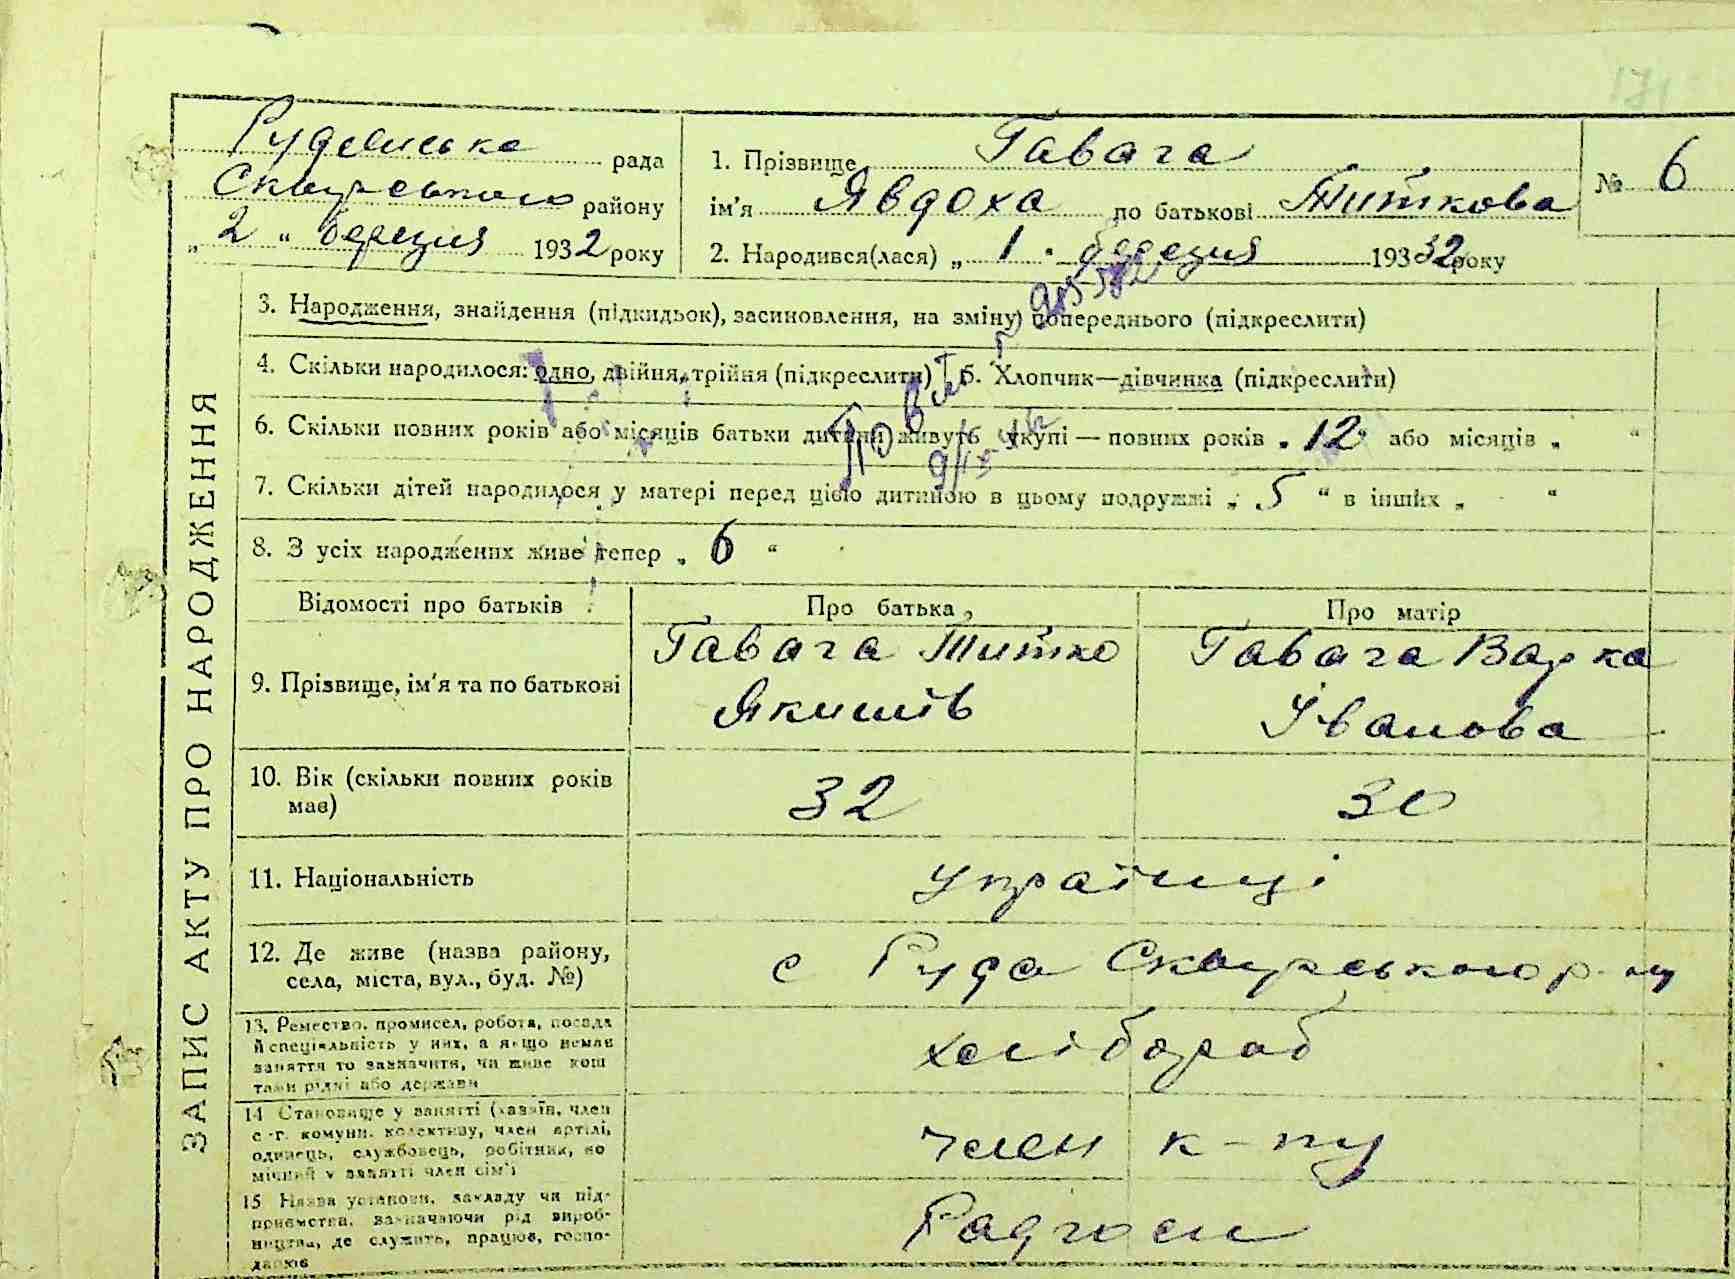 171
Рудянська рада
Сквирського району
„ 2 “ березня 1932 року
1. Прізвище Гавага
ім'я Явдоха по батькові Титкова
2. Народився(лася) „ 1 “ березня 193 32 року
№ 6
ЗАПИС АКТУ ПРО НАРОДЖЕННЯ
3. Народження, знайдення (підкидьок), засиновлення, на зміну попереднього (підкреслити)
4. Скільки народилося: одно, двійня, трійня (підкреслити) 5. Хлопчик—дівчинка (підкреслити)
6. Скільки повних років або місяців батьки дитини живуть укупі — повних років „ 12 “ або місяців „ “
7. Скільки дітей народилося у матері перед цією дитиною в цьому подружжі „ 5 “ в інших „ “
8. З усіх народжених живе тепер „ 6 “
Відомості про батьків Про батька Про матір
9. Прізвище, ім'я та по батькові
Гавага Титко
Якимів
Гавага Варка
Іванова
10. Вік (скільки повних років має) 32 30
11. Національність українці
12. Де живе (назва району,
села, міста, вул., буд. №)
с Руда Сквирського р-ну
13. Ремество, промисел, робота, посада
й спеціяльність у них, а якщо немає
заняття то зазначити, чи живе кош
тами рідні або держави
хлібороб
14 Становище у занятті (хазяїн, член
с.-г. комуни, колективу, член артілі,
одинець, службовець, робітник, по
мічний у занятті член сім'ї
член к-пу
15 Назва установи, закладу чи під-
приємства, зазначаючи рід вироб-
ництва, де служить, працює, госпо-
дарює